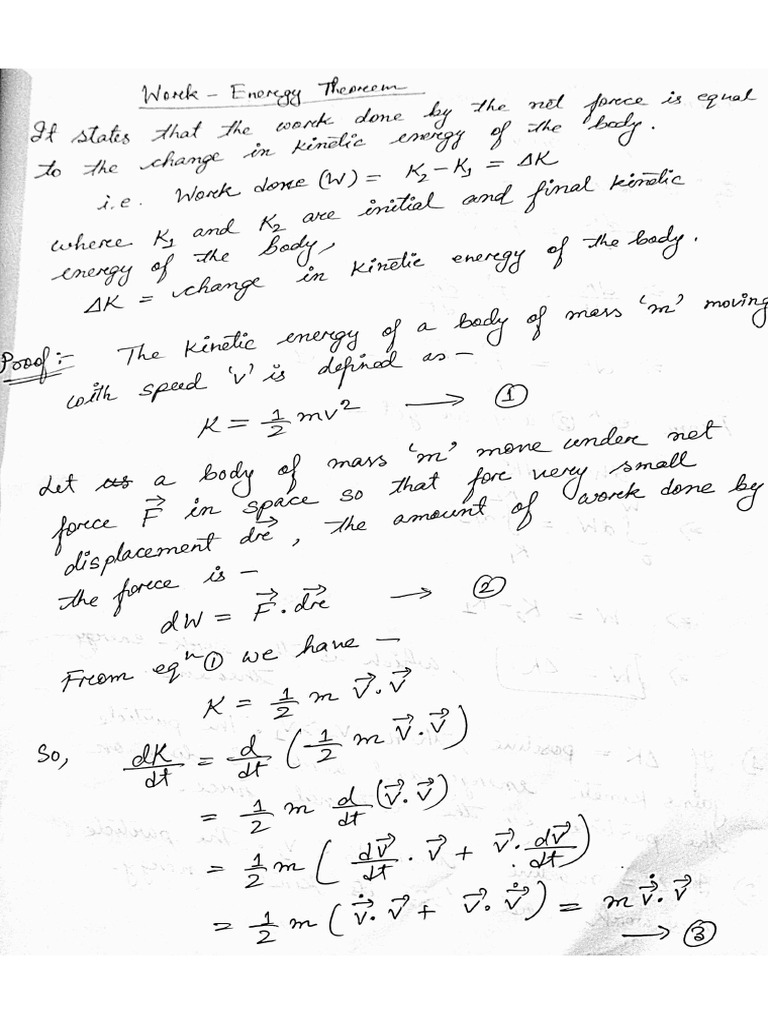 Work - Energy Theorem
It states that the work done by the net force is equal
to the change in kinetic energy of the body.
i.e. Work done (W) = K₂ - K₁ = ΔK
where K₁ and K₂ are initial and final kinetic
energy of the body,
ΔK = change in kinetic energy of the body.
Proof :- The kinetic energy of a body of mass 'm' moving
with speed 'v' is defined as -
K = 1/2 mv² → ①
Let a body of mass 'm' move under net
force F⃗ in space so that for very small
displacement dr⃗, the amount of work done by
the force is -
dW = F⃗ . dr⃗ → ②
From eqⁿ ① we have -
K = 1/2 m v⃗ . v⃗
So, dK/dt = d/dt (1/2 m v⃗ . v⃗)
= 1/2 m d/dt (v⃗ . v⃗)
= 1/2 m (dv⃗/dt . v⃗ + v⃗ . dv⃗/dt)
= 1/2 m (v⃗̇ . v⃗ + v⃗ . v⃗̇) = m v⃗̇ . v⃗
→ ③